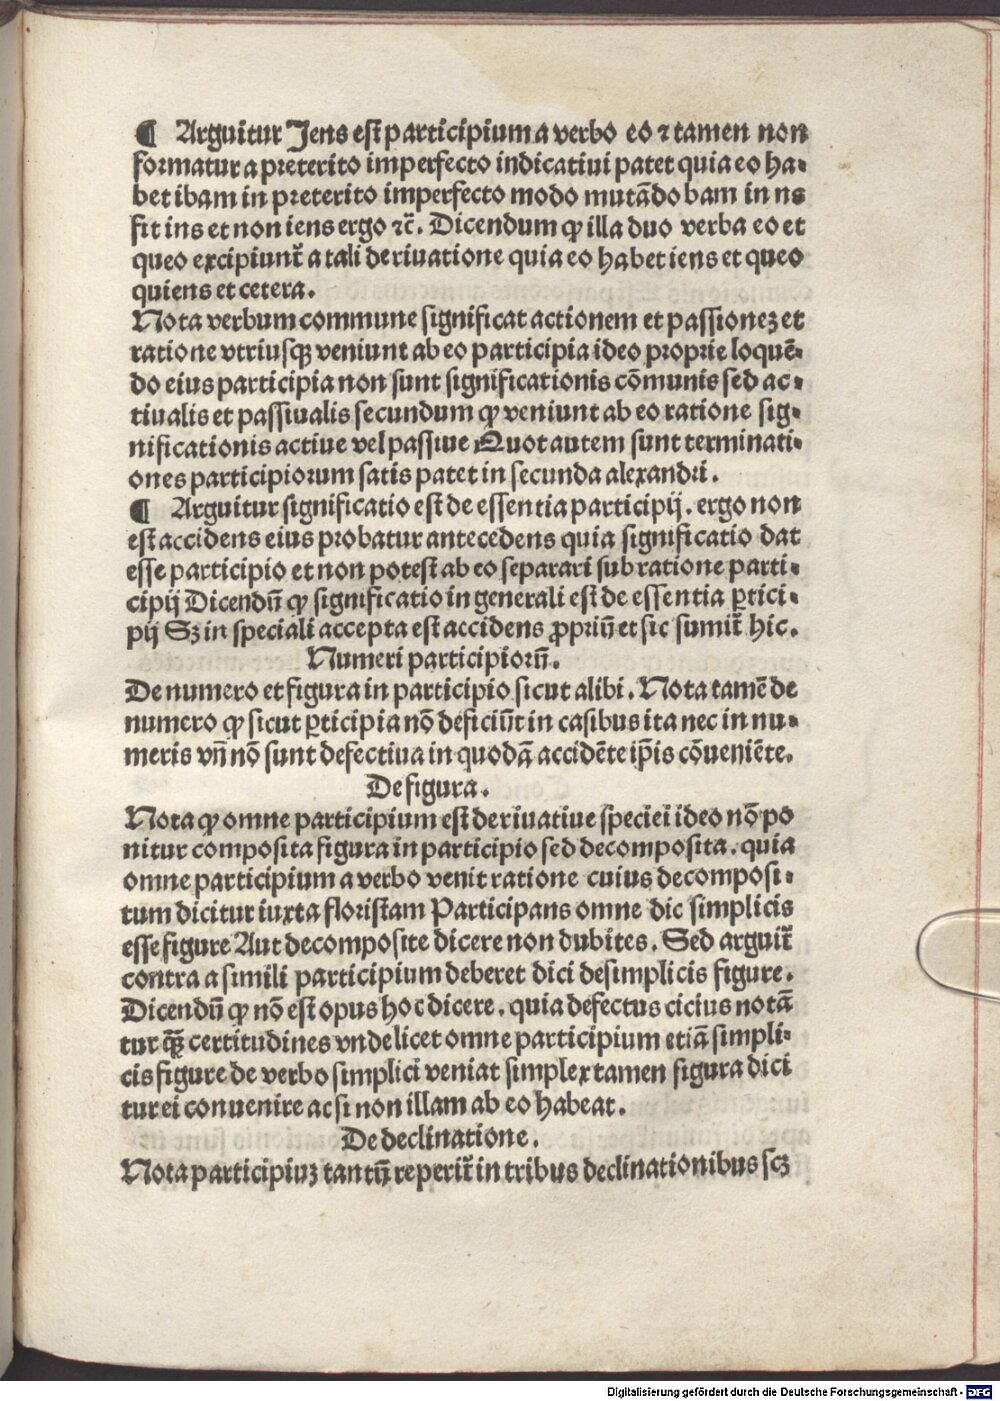 ¶ Arguitur Iens est participium a verbo eo ⁊ tamen non
formatur a preterito imperfecto indicatiui patet quia eo ha⸗
bet ibam in preterito imperfecto modo mutādo bam in ns
fit ins et non iens ergo ⁊c̄. Dicendum ꝙ illa duo verba eo et
queo excipiunt᷑ a tali deriuatione quia eo habet iens et queo
quiens et cetera.
Nota verbum commune significat actionem et passionez et
ratione vtriusqꝫ veniunt ab eo participia ideo proprie loquē⸗
do eius participia non sunt significationis cōmunis sed ac⸗
tiualis et passiualis secundum ꝙ veniunt ab eo ratione sig⸗
nificationis actiue vel passiue Quot autem sunt terminati⸗
ones participiorum satis patet in secunda alexandri.
¶ Arguitur significatio est de essentia participij. ergo non
est accidens eius probatur antecedens quia significatio dat
esse participio et non potest ab eo separari sub ratione parti⸗
cipij Dicendū ꝙ significatio in generali est de essentia ꝑtici⸗
pij Sꝫ in speciali accepta est accidens ꝓpriū et sic sumit᷑ hic.
Numeri participiorū.
De numero et figura in participio sicut alibi. Nota tamē de
numero ꝙ sicut ꝑticipia nō deficiūt in casibus ita nec in nu⸗
meris vn̄ nō sunt defectiua in quodā accidēte ip̄is cōueniēte.
De figura.
Nota ꝙ omne participium est deriuatiue speciei ideo nō po
nitur composita figura in participio sed decomposita. quia
omne participium a verbo venit ratione cuius decomposi⸗
tum dicitur iuxta floristam Participans omne dic simplicis
esse figure Aut decomposite dicere non dubites. Sed arguit᷑
contra a simili participium deberet dici desimplicis figure.
Dicendū ꝙ nō est opus hoc dicere. quia defectus cicius notā
tur qꝫ̄ certitudines vnde licet omne participium etiā simpli⸗
cis figure de verbo simplici veniat simplex tamen figura dici
tur ei conuenire ac si non illam ab eo habeat.
De declinatione.
Nota participiuꝫ tantū reperit᷑ in tribus declinationibus scꝫ
Digitalisierung gefördert durch die Deutsche Forschungsgemeinschaft - DFG